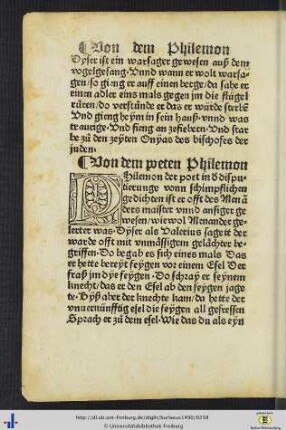 ¶Von dem Philemon
Dyser ist ein warsager gewesen auß dem
vogelgesang. Vnnd wann er wolt warsa-
gen/so gieng er auff einen berge/da sahe er
einen adler eins mals gegen jm die flügel
rüren/do verstunde er das er würde sterbē
Vnd gieng heym in sein hauß/vnnd was
traurige. Vnd fieng an zefiebern. Vnd star
be zů den zeyten Onyas des bischofes der
juden.
¶Von dem poeten Philemon
PHilemon der poet in d dispu-
tierunge vonn schimpflichen
gedichten ist er offt des Menā
ders maister vnnd ansiger ge
wesen/wiewol Menander ge-
lerter was. Dyser als Valerius saget der
warde offt mit vnmässigem gelächter be-
griffen. Do begab es sich eines mals Das
er hette bereyt feygen vor einem Esel Der
fraß jm dye feygen. Do schray er seynem
knecht/das er den Esel ab den feygen jag
te. Byß aber der knechte kam/da hette der
vnuernünfftig esel die feygen all gefressen
Sprach er zů dem esel. Wie das du als eyn
http://dl.ub.uni-freiburg.de/diglit/burlaeus1490/0238
© Universitätsbibliothek Freiburg